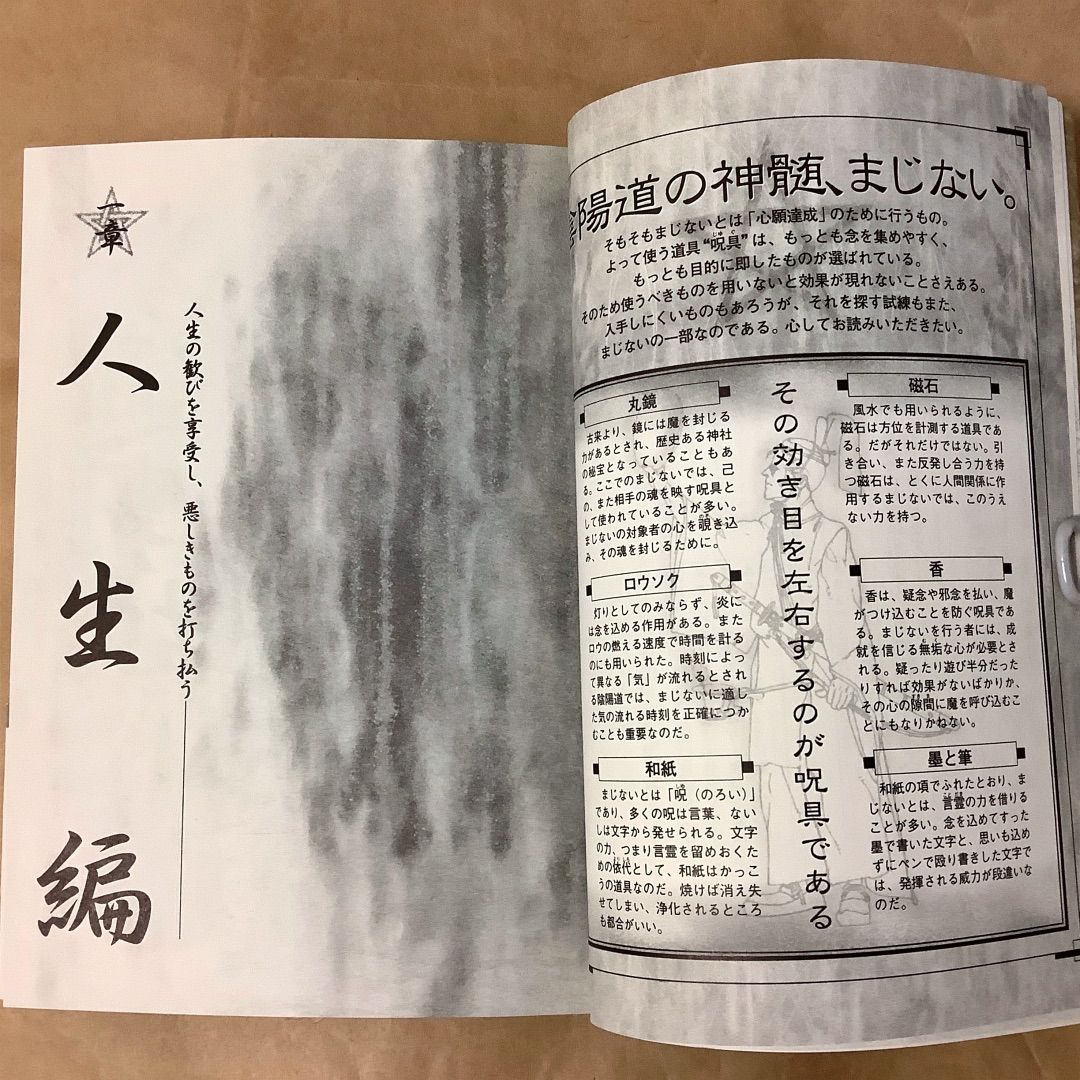 一章
人生編
人生の歓びを享受し、悪しきものを打ち払う
陰陽道の神髄、まじない。
そもそもまじないとは「心願達成」のために行うもの。
よって使う道具“呪具”は、もっとも念を集めやすく、
もっとも目的に即したものが選ばれている。
そのため使うべきものを用いないと効果が現れないことさえある。
入手しにくいものもあろうが、それを探す試練もまた、
まじないの一部なのである。心してお読みいただきたい。
その効き目を左右するのが呪具である
磁石
風水でも用いられるように、
磁石は方位を計測する道具であ
る。だがそれだけではない。引
き合い、また反発し合う力を持
つ磁石は、とくに人間関係に作
用するまじないでは、このうえ
ない力を持つ。
香
香は、疑念や邪念を払い、魔
がつけ込むことを防ぐ呪具であ
る。まじないを行う者には、成
就を信じる無垢な心が必要とさ
れる。疑ったり遊び半分だった
りすれば効果がないばかりか、
その心の隙間に魔を呼び込むこ
とにもなりかねない。
墨と筆
和紙の項でふれたとおり、ま
じないとは、言霊の力を借りる
ことが多い。念を込めてすった
墨で書いた文字と、思いも込め
ずにペンで殴り書きした文字で
は、発揮される威力が段違いな
のだ。
丸鏡
古来より、鏡には魔を封じる
力があるとされ、歴史ある神社
の秘宝となっていることもあ
る。ここでのまじないでは、己
の、また相手の魂を映す呪具と
して使われていることが多い。
まじないの対象者の心を覗き込
み、その魂を封じるために。
ロウソク
灯りとしてのみならず、炎に
は念を込める作用がある。また
ロウの燃える速度で時間を計る
のにも用いられた。時刻によっ
て異なる「気」が流れるとされ
る陰陽道では、まじないに適し
た気の流れる時刻を正確につか
むことも重要なのだ。
和紙
まじないとは「呪（のろい）」
であり、多くの呪は言葉、ない
しは文字から発せられる。文字
の力、つまり言霊を留めおくた
めの依代として、和紙はかっこ
うの道具なのだ。焼けば消え失
せてしまい、浄化されるところ
も都合がいい。